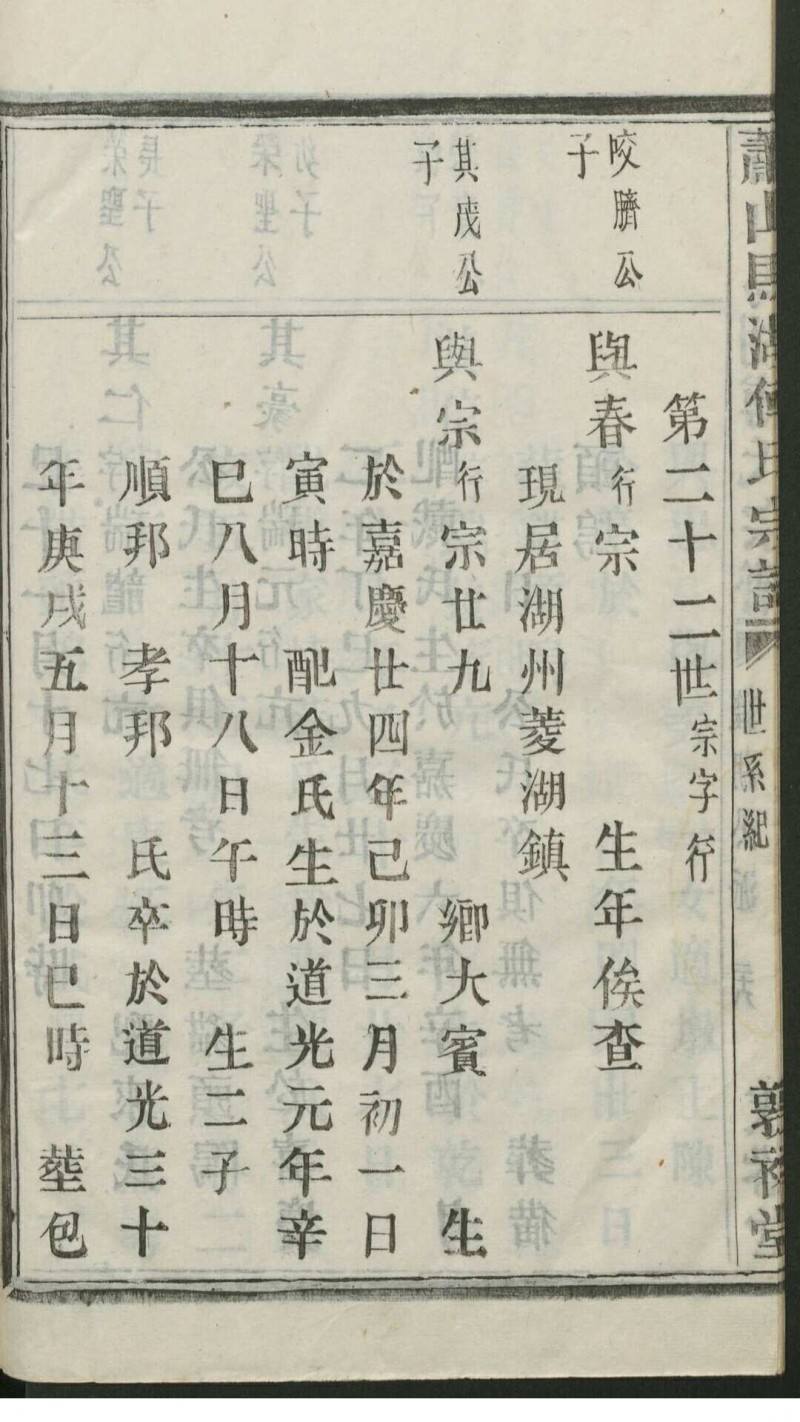 蕭山馬湖傅氏宗譜 世系紀 敦禮堂
第二十二世宗字行
咬臍公
子
與春行宗 生年俟查
現居湖州菱湖鎮
其茂公
子
與宗行宗廿九 鄉大賓 生
於嘉慶廿四年己卯三月初一日
寅時 配金氏生於道光元年辛
巳八月十八日午時 生二子
順邦 孝邦 氏卒於道光三十
年庚戌五月十三日巳時 塟包